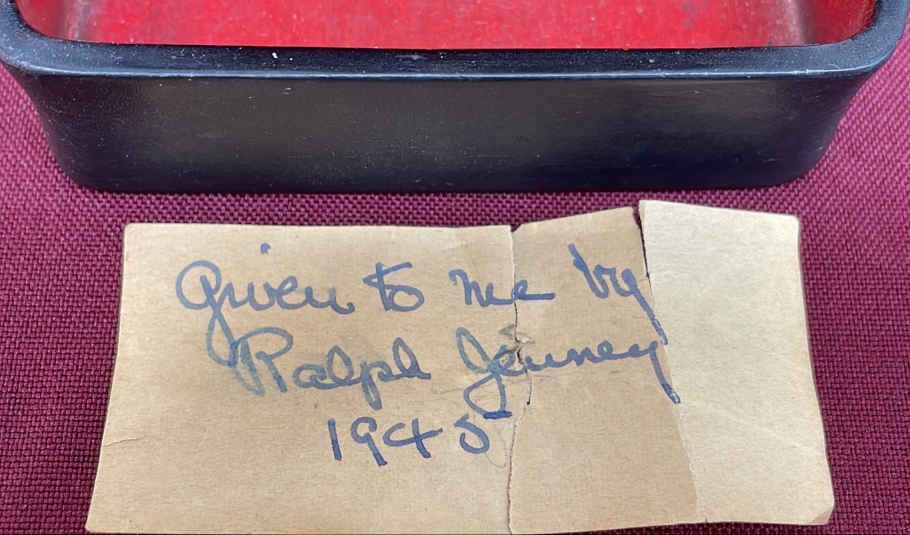 Given to me by
Ralph Jenney
1945